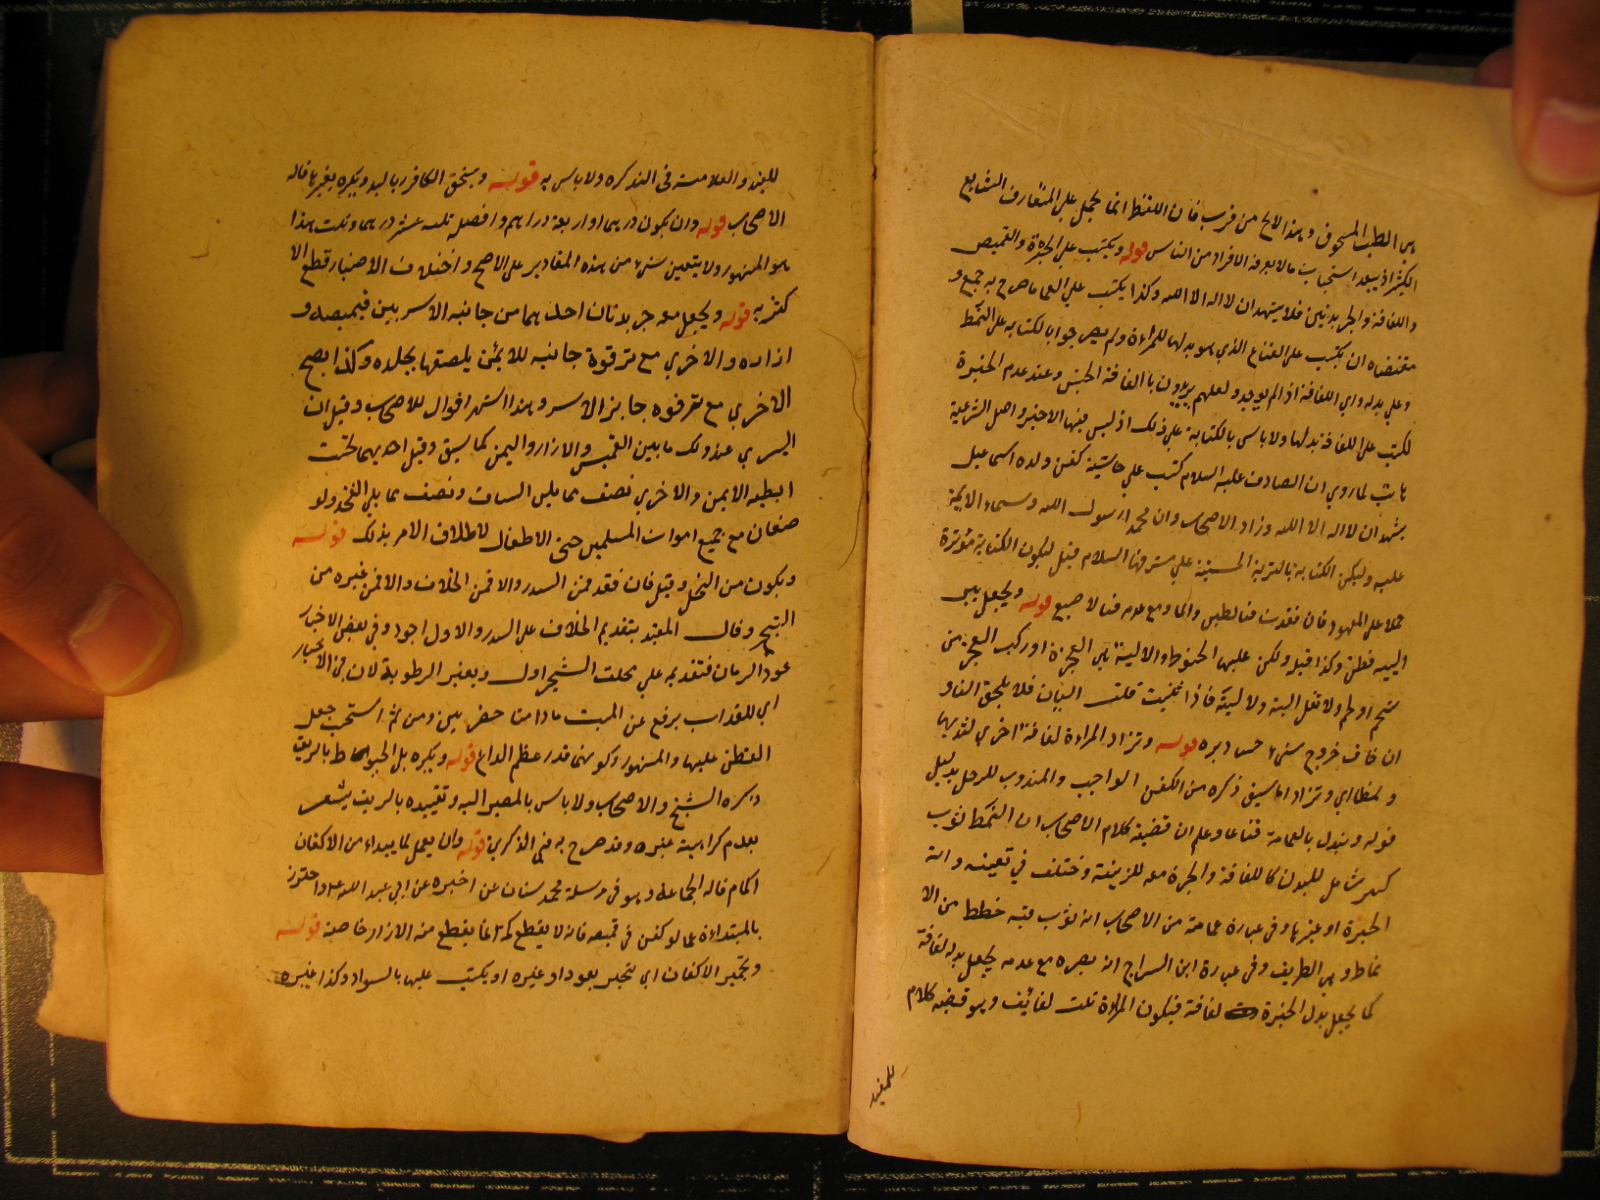 هي الطيب المسحوق وهذا الالح من قرب فان اللفظ انما يحمل علي المتعارف الشايع
الكثير اذ يبعد استحباب مالا يعرفه الا افراد من الناس قوله ويكتب علي الحبرة والقميص
واللفافة والجريدتين فلان يشهد ان لا اله الا الله وكذا يكتب علي العمامة صرح به جمع و
مقتضاه ان يكتب علي القناع الذي هو بدلها للمراة ولم يصرحوا بالكتابه علي النمط
وعلي بدله اي اللفافة اذا لم يوجد ولعلهم يريدون باللفافة الجنس وعند عدم الحبرة
لكتب علي اللفافة بدلها ولا باس بالكتابة علي ذلك اذ ليس فيها الا خير واصل الشرعية
ثابت لما روي ان الصادق عليه السلام كتب علي حاشية كفن ولده اسمعيل
يشهد ان لا اله الا الله وزاد الاصحاب وان محمدا رسول الله وسماء الايمة
عليه وليكن الكتابة بالتربة الحسينية علي مشرفها السلام قيل ليكون الكتابة مؤثرة
حملا علي المعهود فان فقدت فبالطين والماء ومع عدمه فبالاصبع قوله ويجعل بين
اليتيه قطن وكذا قبله ولكن عليها الحنوط والالية هي العجيزة او ركب العجز من
شحم او لحم ولا تقل الية ولا لية فاذا ثنيت قلت اليان فلا يلحق التاء و
ان خاف خروج شيء حشي دبره قوله وتزاد المراة لفافة اخري لثدييها
ونمطا اي وتزاد اما سبق ذكره من الكفن الواجب والمندوب للرجل بدليل
قوله وتبدل بالعمامة قناعا وعلم ان قضية كلام الاصحاب ان النمط ثوب
كبير شامل للبدن كاللفافة والحبرة معه للزينة وختلف في تعيينه وانه
الحبرة او غيرها وفي عبارة عامة من الاصحاب انه ثوب فيه خطط من الا
نماط وهي الطريق وفي عبارة ابن السراج انه بصره مع عدمه يجعل بدله لفافة
كما يجعل بدل الحبرة لفافة فيكون للمراة ثلث لفائف وهو قضية كلام
للمفيد
للمفيد والعلامة في التذكره ولا باس به قوله وسحق الكافور باليد ويكره بغيرها قاله
الاصحاب قوله وان يكون درهما او اربعة دراهم وافضله ثلثه عشر درهما وثلث هذا
هو المشهور ولا يتعين شيء من هذه المقادير علي الاصح واختلاف الاخبار قطع الا
كثر به قوله ويجعل معه جريدتان احدهما من جانبه الايسر بين قميصه و
ازاره والاخري مع ترقوة جانبه للايمن يلصقها بجلده وكذا يصح
الاخري مع ترقوه جانبه الايسر وهذا اشهر اقوال للاصحاب وقيل ان
اليسري عند وركه ما بين القميص والازار واليمن كما سبق وقيل احديهما تحت
ابطيه الايمن والاخري نصف مما يلي الساق ونصف مما يلي الفخذ ولو
صنعان مع جميع اموات المسلمين حتي الاطفال لاطلاق الامر بذلك قوله
ويكون من النخل وقيل فان فقد فمن السدر والا فمن الخلاف والا فمن غيره من
الشجر وقال المفيد بتقديم الخلاف علي السدر والاول اجود وفي بعض الاخبار
عود الرمان فتقديمه علي مطلق الشجر اولي ويعتبر الرطوبة لان في الاخبار
اي للعذاب يرفع عن الميت ما دامتا خضر بين ومن ثم استحب جعل
القطن عليها والمشهور كونهما قدر عظم الذراع قوله ويكره بل الخيوط بالريق
ذكره الشيخ والاصحاب ولا باس بالمصير اليه وتقييده بالريق يشعر
بعدم كراهية غيره وقد صرح به في الذكري قوله وان يعمل لما يبتدا من الاكفان
اكمام قاله الجماعة وهو في مرسلة محمد بن سنان عن اخبره عن ابي عبد الله ع واحترز
بالمبتداءة عما لو كفن في قميصه فانه لا يقطع كمه انما يقطع منه الازرار خاصة قوله
وتجمير الاكفان اي تبخير بعود او غيره او يكتب عليها بالسواد وكذا غيره